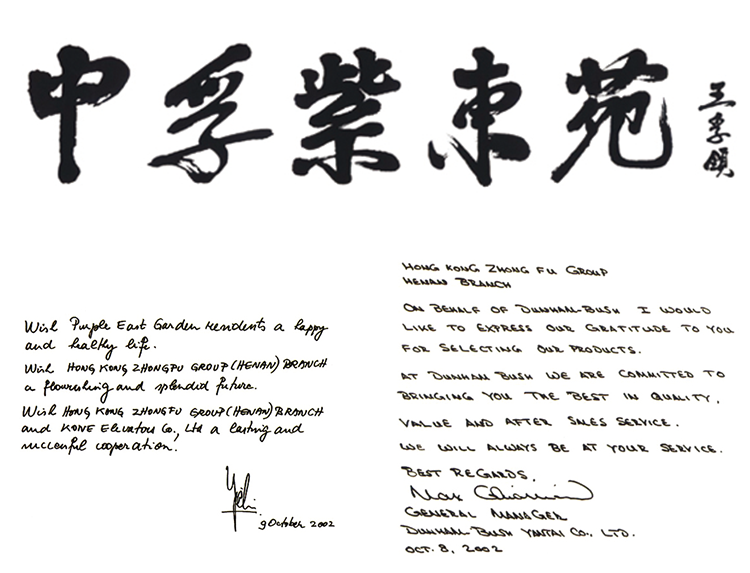 中孚紫東苑
王季顗
Wish Purple East Garden residents a happy
and healthy life.
Wish HONG KONG ZHONGFU GROUP (HENAN) BRANCH
a flourishing and splendid future.
Wish HONG KONG ZHONGFU GROUP (HENAN) BRANCH
and KONE Elevators Co., Ltd a lasting and
successful cooperation.
9 October 2002
HONG KONG ZHONG FU GROUP
HENAN BRANCH
ON BEHALF OF DUNHAM-BUSH I WOULD
LIKE TO EXPRESS OUR GRATITUDE TO YOU
FOR SELECTING OUR PRODUCTS.
AT DUNHAM BUSH WE ARE COMMITTED TO
BRINGING YOU THE BEST IN QUALITY,
VALUE AND AFTER SALES SERVICE.
WE WILL ALWAYS BE AT YOUR SERVICE.
BEST REGARDS,
GENERAL MANAGER
DUNHAM-BUSH YANTAI CO., LTD.
OCT. 8, 2002